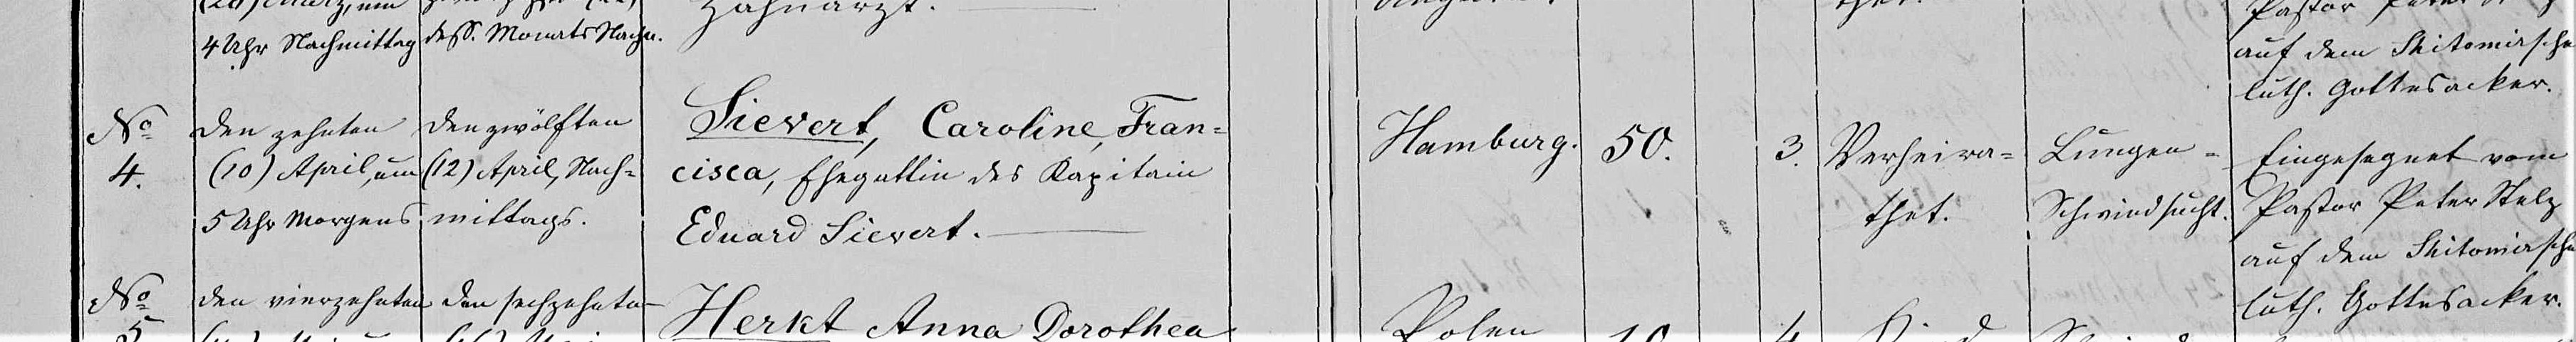 4 Uhr Nachmittag
dess. Monats Nachm.
Zahnarzt.
Pastor Peter
auf dem Shitomirsche
luth. Gottesacker.
No
4.
den zehnten
(10) April, um
5 Uhr Morgens
den zwölften
(12) April, Nach-
mittags.
Sievert, Caroline, Fran-
cisca, Ehegattin des Kapitain
Eduard Sievert.
Hamburg.
50.
3.
Verheira-
thet.
Lungen-
Schwindsucht.
Eingesegnet vom
Pastor Peter Stelz
auf dem Shitomirsche
luth. Gottesacker.
No
5
den vierzehnten
den sechzehnten
Herkt Anna Dorothea
Polen
10
4
Kind